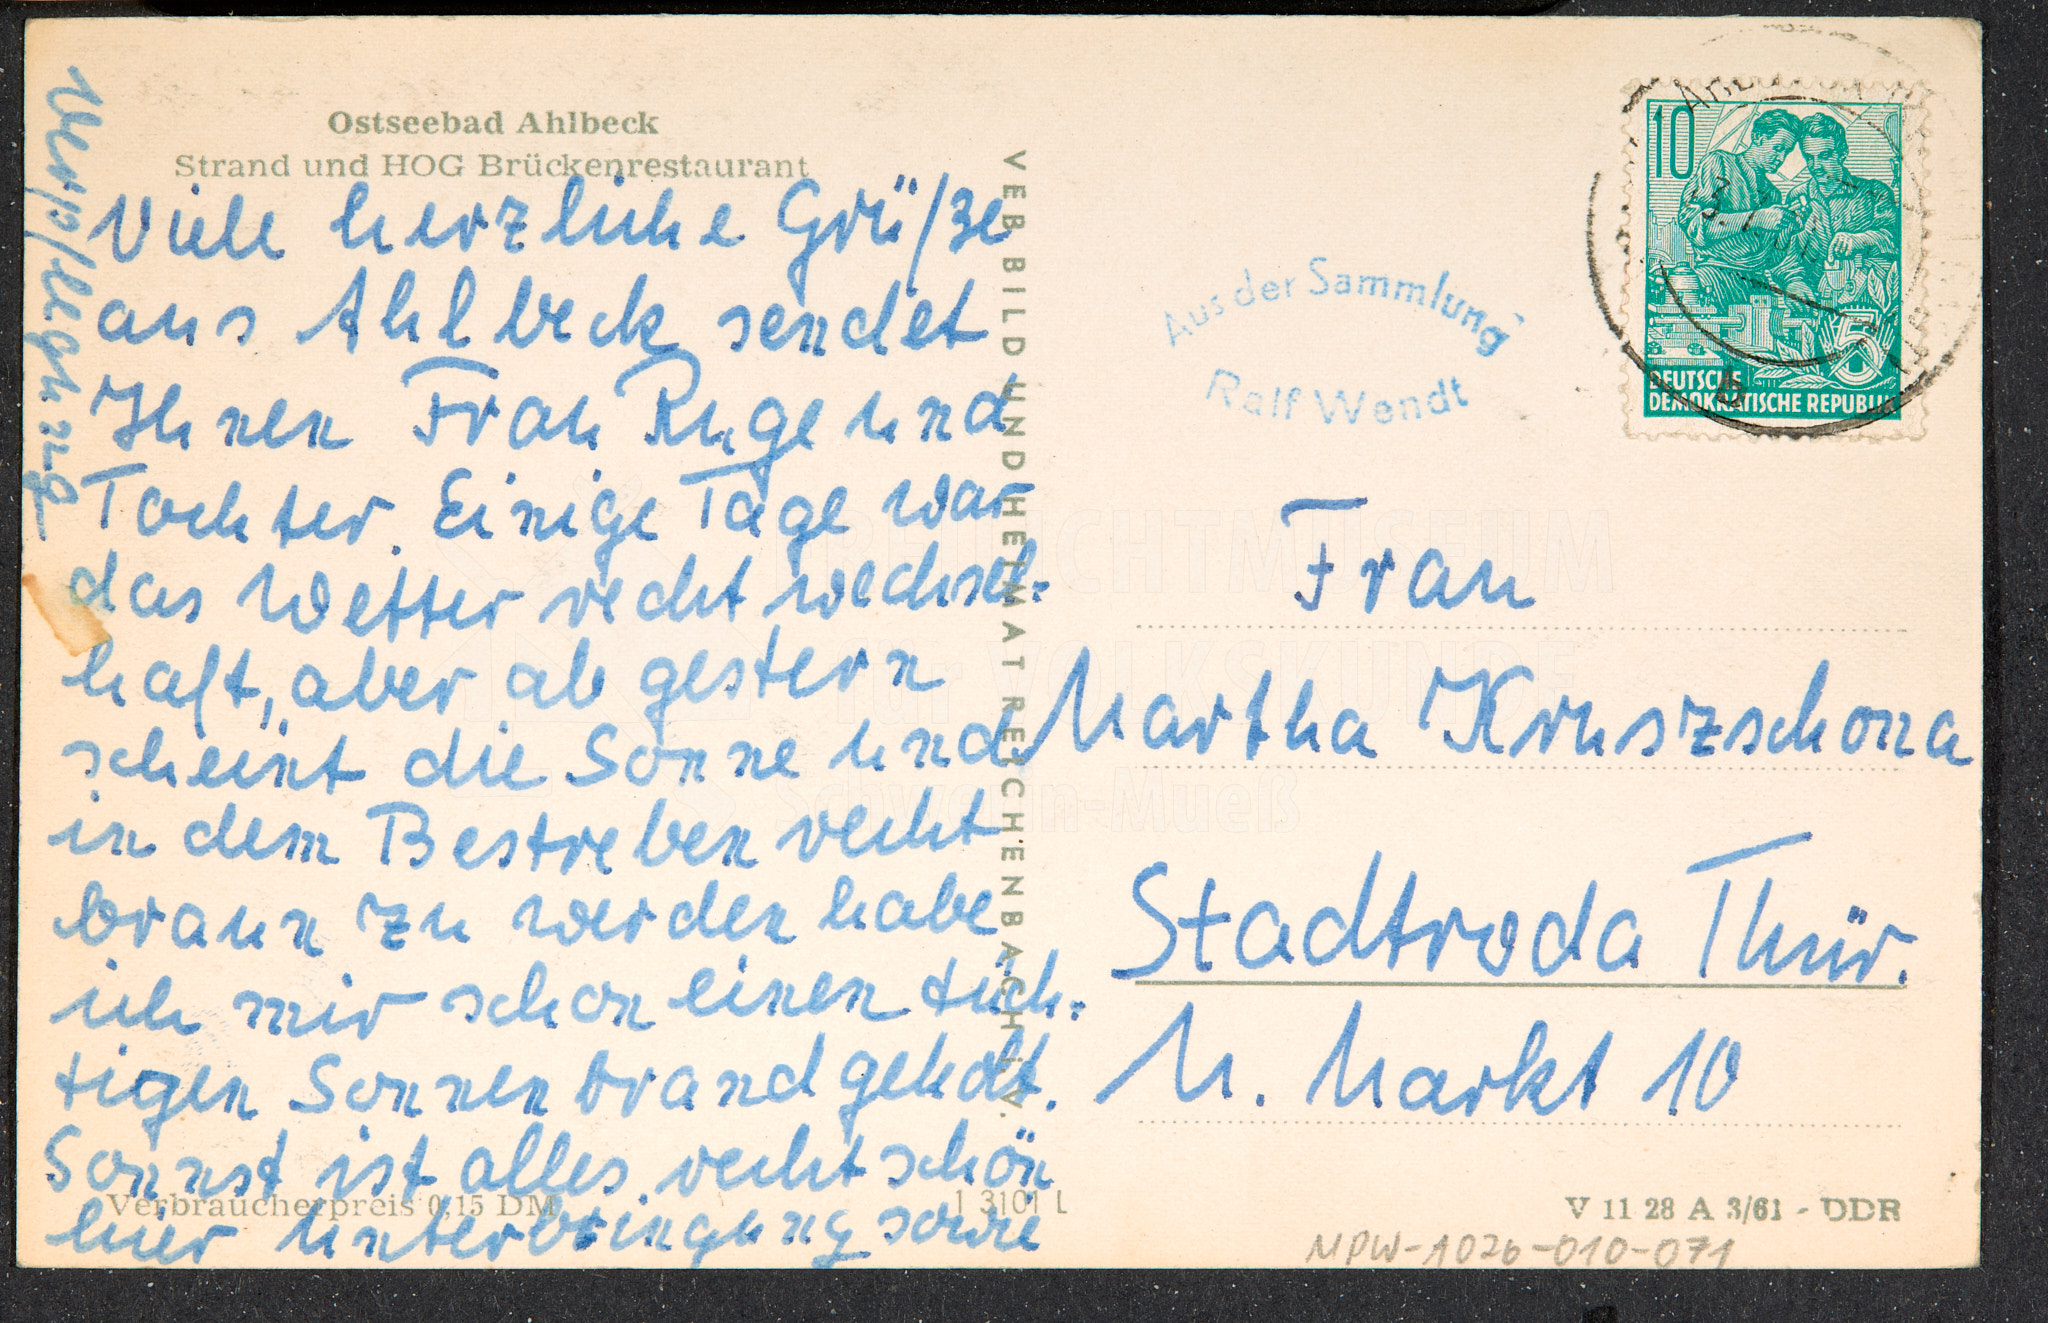 Ostseebad Ahlbeck
Strand und HOG Brückenrestaurant
Viele herzliche Grüße
aus Ahlbeck sendet
Ihnen Frau Ruge und
Tochter. Einige Tage war
das Wetter recht wechsel-
haft, aber ab gestern
scheint die Sonne und
in dem Bestreben recht
braun zu werden habe
ich mir schon einen tüch-
tigen Sonnenbrand geholt.
Sonnst ist alles recht schön
hier Unterbringung sowie
Verpflegung
Verbraucherpreis 0,15 DM
1 3101 L
VEB BILD UND HEIMAT REICHENBACH i. V.
Aus der Sammlung
Ralf Wendt
10
5
DEUTSCHE
DEMOKRATISCHE REPUBLIK
Frau
Martha Kruszschona
Stadtroda Thür.
M. Markt 10
V 11 28 A 3/61 - DDR
MPW-1026-010-071
FREILICHTMUSEUM
für VOLKSKUNDE
Schwerin-Mueß